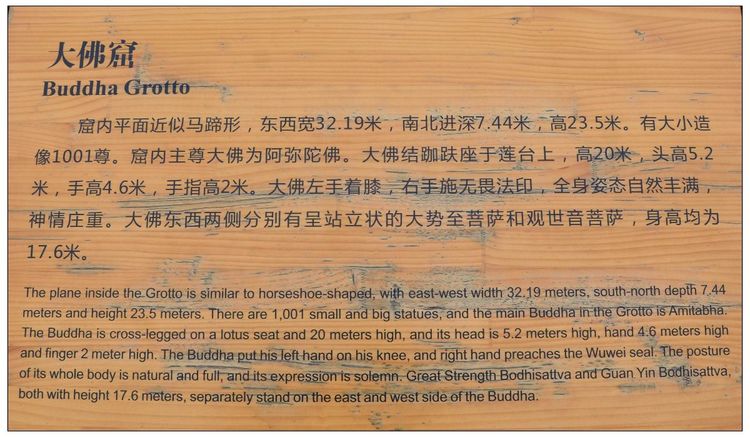 大佛窟
Buddha Grotto
窟内平面近似马蹄形，东西宽32.19米，南北进深7.44米，高23.5米。有大小造
像1001尊。窟内主尊大佛为阿弥陀佛。大佛结跏趺座于莲台上，高20米，头高5.2
米，手高4.6米，手指高2米。大佛左手着膝，右手施无畏法印，全身姿态自然丰满，
神情庄重。大佛东西两侧分别有呈站立状的大势至菩萨和观世音菩萨，身高均为
17.6米。
The plane inside the Grotto is similar to horseshoe-shaped, with east-west width 32.19 meters, south-north depth 7.44
meters and height 23.5 meters. There are 1,001 small and big statues, and the main Buddha in the Grotto is Amitabha.
The Buddha is cross-legged on a lotus seat and 20 meters high, and its head is 5.2 meters high, hand 4.6 meters high
and finger 2 meter high. The Buddha put his left hand on his knee, and right hand preaches the Wuwei seal. The posture
of its whole body is natural and full, and its expression is solemn. Great Strength Bodhisattva and Guan Yin Bodhisattva,
both with height 17.6 meters, separately stand on the east and west side of the Buddha.